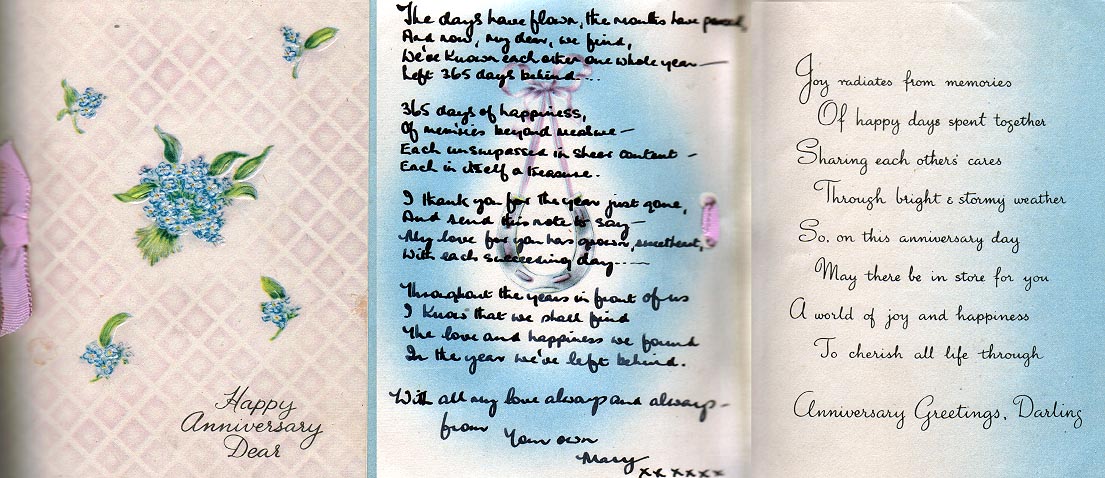 Happy
Anniversary
Dear
The days have flown, the months have passed,
And now, my dear, we find,
We've known each other one whole year —
Left 365 days behind....
365 days of happiness,
Of mem'ries beyond measure —
Each unsurpassed in sheer content —
Each in itself a treasure.
I thank you for the year just gone,
And send this note to say —
My love for you has grown, sweetheart,
With each succeeding day......
Throughout the years in front of us
I know that we shall find
The love and happiness we found
In the year we've left behind.
With all my love always and always —
from
Your own
Mary
xx xxxx
Joy radiates from memories
Of happy days spent together
Sharing each others' cares
Through bright & stormy weather
So, on this anniversary day
May there be in store for you
A world of joy and happiness
To cherish all life through
Anniversary Greetings, Darling